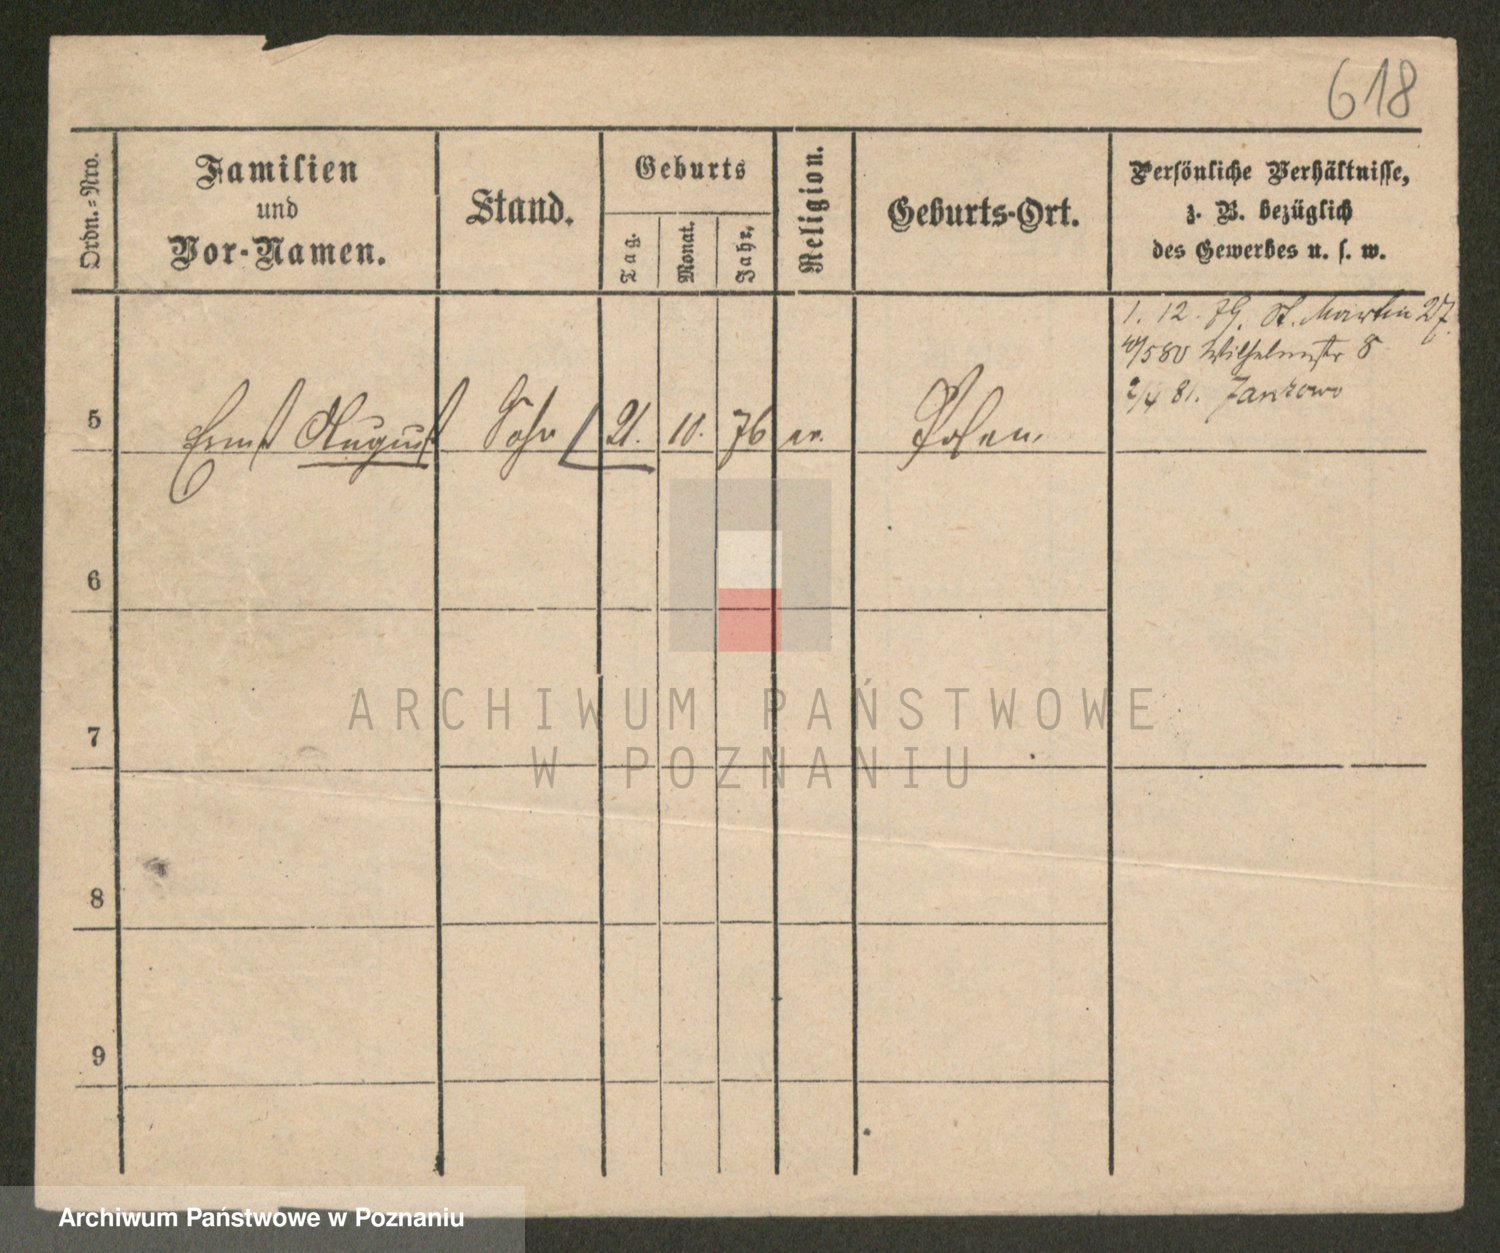 618
Ordn.-Nro.
Familien
und
Vor-Namen.
Stand.
Geburts
Tag.
Monat.
Jahr.
Religion.
Geburts-Ort.
Persönliche Verhältnisse,
z. B. bezüglich
des Gewerbes u. s. w.
1. 12. 79. St. Martin 27.
Wilhelmstr 8
2/4 81. Jankowo
5 Ernst August Sohn 21. 10. 76 ev. Posen.
6
7
8
9
ARCHIWUM PAŃSTWOWE
W POZNANIU
Archiwum Państwowe w Poznaniu